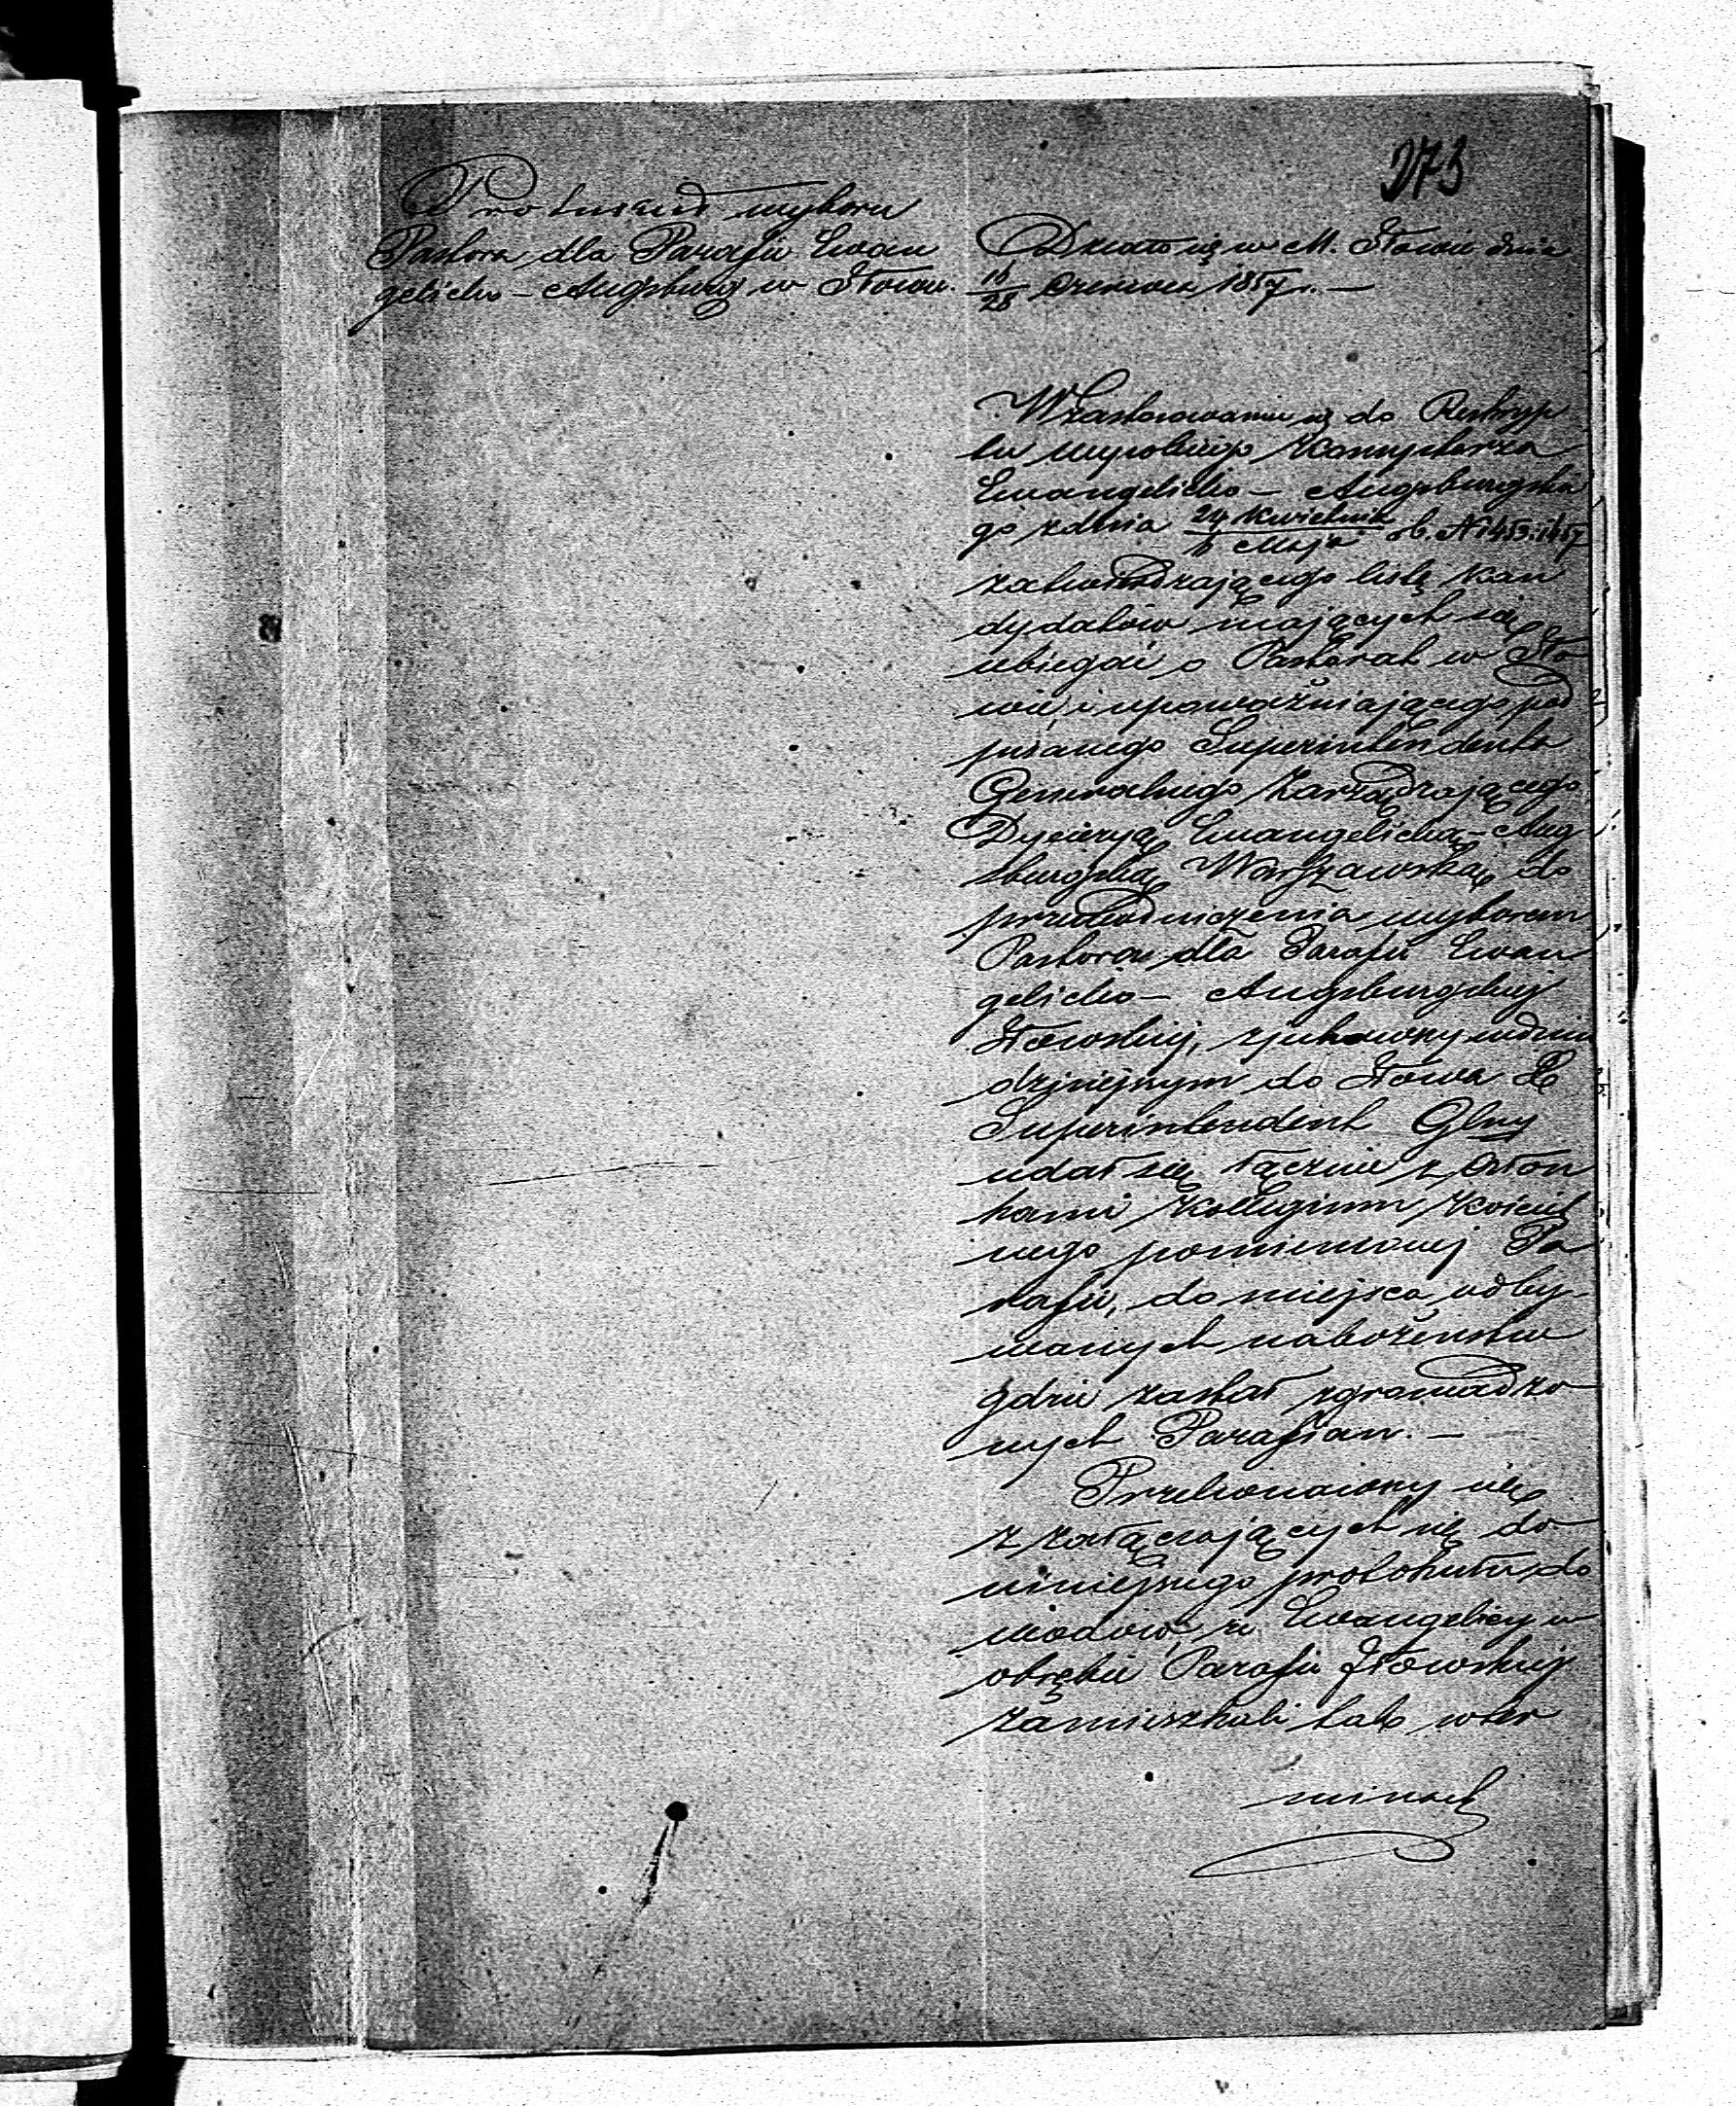 273
Protokuł wyboru
Pastora dla Parafii Ewan
gelicko-Augsburg w Iłowie.
Działo się w M. Iłowie dnia
16/28 Czerwca 1857 r. —
W zastosowaniu się do Reskryp
tu wysokiego Konsystorza
Ewangelicko-Augsburgskie
go z dnia 24 Kwietnia / 6 Maja rb. N 1453.1457
zatwierdzającego listę Kan
dydatów mających się
ubiegać o Pastorat w Iło
wie, i upoważniającego pod
pisanego Superintendenta
Generalnego Zarządzającego
Dyecezyą Ewangelicką-Aug
sburgską Warszawską do
przewodniczenia wyborem
Pastora dla Parafii Ewan
gelicko-Augsburgskiej
Iłowskiej, zjechawszy w dniu
dzisiejszym do Iłowa X
Superintendent Glny
udał się łącznie z Człon
kami Kollegium Kościel
nego pomienionej Pa
rafii, do miejsca odby-
wanych nabożeństw
gdzie zastał zgromadzo
nych Parafian. —
Przekonawszy się
z załączających się do
niniejszego protokułu do
wodów, że Ewangelicy w
obrębie Parafii Iłowskiej
zamieszkali tak w ter
minach